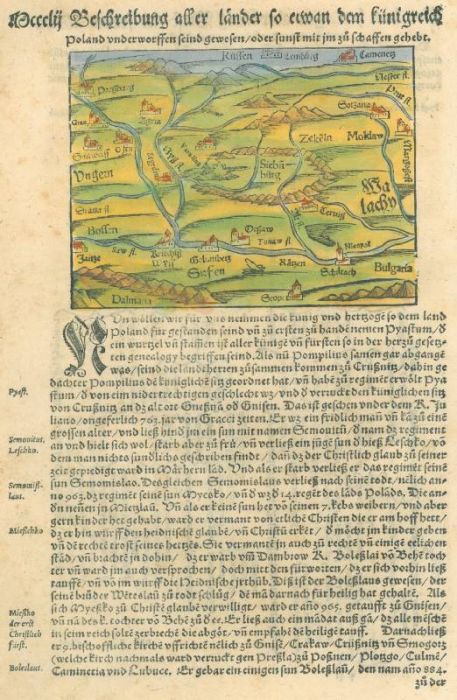 Mccclij Beschreibung aller länder so etwan dem künigreich
Poland vnderworffen seind gewesen/ oder sunst mit jm zů schaffen gehebt.
Reussen Lemburg Camenetz
Prespurg
Nester fl.
Prut fl.
Sotzaua
Gran
Agria
Zekeln Moldaw
Ofen
Vngern
Siebē
bürg
Wa
lachy
Traua fl.
Bossen
Saw fl.
Jaitze
Kriechisch
Wyss.
Columbetz
Orsaw
Tunaw fl.
Sirfen
Rätzen
Bulgaria
Dalmatia
Scopi
NVn wöllen wir für vns nemmen die künig vnd hertzoge so dem land
Poland für gestanden seind vñ zů ersten zů handē nemen Pyastum/ d
ein wurtzel vñ stam̄ ist aller künigē vñ fürsten so in der herzů gesetz-
ten genealogy begriffen seind. Als nū Pompilius samen gar abgangē
was/ seind die landsherren zůsammen kommen zů Crußnitz/ da hin ge
dachter Pompilius dē künigliche sitz geordnet hat/ vñ habē zů regimēt erwölt Pya
stum/ dē von eim nidertrechtigen geschlecht wz/ vnd d verruckt den küniglichen sitz
von Crußnitz an dz alt ort Gneßna od Gnisen. Das ist geschen vnder dem K. Ju
liano/ ongeferlich 763. jar von Gracci zeiten. Er wz ein fridlich man vñ kā zů eim
grossen alter/ vnd ließ nach jm ein sun mit namen Semouitū/ d nam dz regiment
an vnd hielt sich wol/ starb aber zů frü/ vñ verließ ein junge sun d hieß Leschko/ vō
dem man nichts sundlichs geschriben findt/ dañ dz der Christlich glaub zů seiner
zeit geprediget ward in Märhern lād. Vnd als er starb verließ er das regimēt seinē
sun Semomislao. Desgleichen Semomislaus verließ nach seinē todt/ nēlich an-
no 963. dz regimēt seinē sun Mycsko/ vñ d wz d 14. regēt des lāds Polads. Die an-
dn nenen in Mietzlau. Vñ als er keinē sun het vō seinen 7. kebs weibern/ vnd aber
gern kinder het gehabt/ ward er vermant von etliche Christen die er am hoff hett/
dz er hin würff den heidnische glaubē/ vñ Christū erkēt/ d möcht jm kinder geben
vñ dē rechte trost seines hertzes. Sie vermantē jn auch zů rechtē vñ einigē eelichen
städ/ vñ brachtē jn dohin/ dz er warb vm̄ Dambrow K. Boleslai vō Behē toch
ter vñ ward jm auch versprochen/ doch mit den fürworten/ dz er sich vorhin ließ
tauffē/ vñ vō jm würff die heidnische jrthüb. Diß ist der Boleslaus gewesen/ der
seinē brüder Wētzelaū zů todt schlůg/ dē mā darnach für heilig hat gehaltē. Als
sich Mycsko zů Christē glaubē verwilliget/ ward er anno 965. getaufft zů Gnisen/
vñ nā des k. tochter vō Behē zů d ee. Er ließ auch ein mādat auß gā/ dz alle mēschē
in seim reich solte zerbrechē die abgöt/ vñ empfahē dē heilige tauff. Darnach ließ
er 9. bischoffliche kirchē vffrichtē nēlich zů Gnisē/ Crakaw/ Crüßnitz vñ Smogorz
(welche kirch nachmals ward verruckt gen Preßla) zů Poßnen/ Plotzgo/ Culmē/
Caminecia vnd Lubuce. Er gebar ein einigen sun Boleslaū/ den nam anno 984.
zů der
Pyast.
Semouitus,
Leschko.
Semomis-
laus.
Mieschko
Miesko
der erst
Christlich
fürst.
Boleslaus.